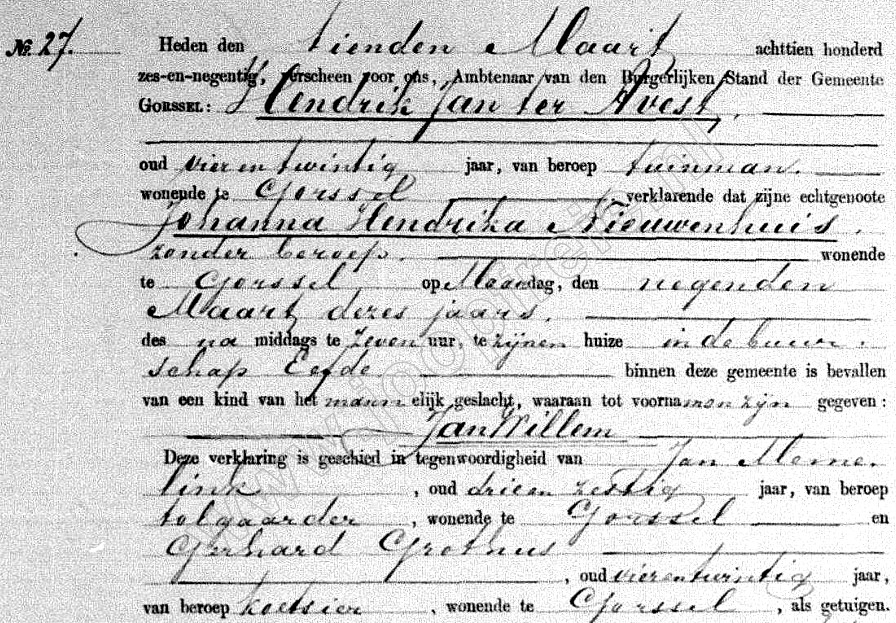 No. 27. Heden den tienden Maart achttien honderd
zes-en-negentig, verscheen voor ons, Ambtenaar van den Burgerlijken Stand der Gemeente
GORSSEL: Hendrik Jan ter Avest,
oud vierentwintig jaar, van beroep tuinman.
wonende te Gorssel verklarende dat zijne echtgenoote
Johanna Hendrika Nieuwenhuis.
zonder beroep. wonende
te Gorssel op Maandag, den negenden
Maart dezes jaars.
des na middags te zeven uur, te zijnen huize in de buur-
schap Eefde binnen deze gemeente is bevallen
van een kind van het mannelijk geslacht, waaraan tot voornamen zijn gegeven:
Jan Willem
Deze verklaring is geschied in tegenwoordigheid van Jan Meme-
link, oud drieenzestig jaar, van beroep
tolgaarder, wonende te Gorssel en
Gerhard Grothus
, oud vierentwintig jaar,
van beroep koetsier, wonende te Gorssel, als getuigen.